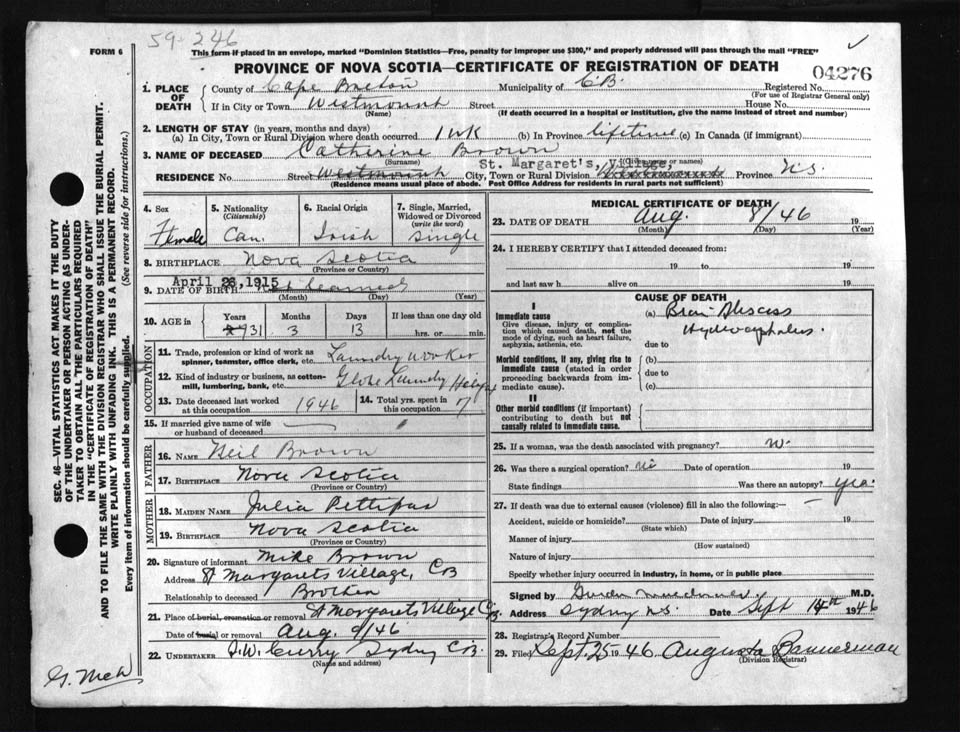 59-246
FORM 6
This form if placed in an envelope, marked "Dominion Statistics—Free, penalty for improper use $300," and properly addressed will pass through the mail "FREE"
PROVINCE OF NOVA SCOTIA—CERTIFICATE OF REGISTRATION OF DEATH
04276
1. PLACE OF DEATH
County of Cape Breton Municipality of C.B. Registered No.
(For use of Registrar General only)
If in City or Town Westmount Street House No.
(Name) (If death occurred in a hospital or institution, give the name instead of street and number)
2. LENGTH OF STAY (in years, months and days)
(a) In City, Town or Rural Division where death occurred 1 wk (b) In Province lifetime (c) In Canada (if immigrant)
3. NAME OF DECEASED Catherine Brown
(Surname) names)
St. Margaret's, Village,
RESIDENCE No. Street Westmount City, Town or Rural Division Province N.S.
(Residence means usual place of abode. Post Office Address for residents in rural parts not sufficient)
4. Sex
Female
5. Nationality
(Citizenship)
Can.
6. Racial Origin
Irish
7. Single, Married, Widowed or Divorced
(write the word)
Single
8. BIRTHPLACE Nova Scotia
(Province or Country)
April 26, 1915
9. DATE OF BIRTH
(Month) (Day) (Year)
10. AGE in
Years Months Days If less than one day old
31 3 13 hrs. or min.
OCCUPATION
11. Trade, profession or kind of work as spinner, teamster, office clerk, etc. Laundry worker
12. Kind of industry or business, as cotton-mill, lumbering, bank, etc. Globe Laundry Halifax
13. Date deceased last worked at this occupation 1946
14. Total yrs. spent in this occupation 7
15. If married give name of wife or husband of deceased
FATHER
16. NAME Neil Brown
17. BIRTHPLACE Nova Scotia
(Province or Country)
MOTHER
18. MAIDEN NAME Julia Pettipas
19. BIRTHPLACE Nova Scotia
(Province or Country)
20. Signature of informant Mike Brown
Address St Margarets Village, CB
Relationship to deceased Brother
21. Place of burial, cremation or removal St Margarets Village C.B.
Date of burial or removal Aug. 9/46
22. UNDERTAKER Curry Sydney CB.
(Name and address)
MEDICAL CERTIFICATE OF DEATH
23. DATE OF DEATH Aug. 8/46 19
(Month) (Day) (Year)
24. I HEREBY CERTIFY that I attended deceased from:
19 to 19
and last saw h alive on 19
CAUSE OF DEATH
I
Immediate cause
Give disease, injury or complication which caused death, not the mode of dying, such as heart failure, asphyxia, asthenia, etc.
(a) Brain Abscess
Hydrocephalus.
due to
Morbid conditions, if any, giving rise to immediate cause (stated in order proceeding backwards from immediate cause).
(b)
due to
(c)
II
Other morbid conditions (if important) contributing to death but not causally related to immediate cause.
25. If a woman, was the death associated with pregnancy?
26. Was there a surgical operation? no Date of operation 19
State findings Was there an autopsy? yes.
27. If death was due to external causes (violence) fill in also the following:—
Accident, suicide or homicide? Date of injury 19
(State which)
Manner of injury
(How sustained)
Nature of injury
Specify whether injury occurred in industry, in home, or in public place
Signed by M.D.
Address Sydney N.S. Date Sept 14th 1946
28. Registrar's Record Number
29. Filed Sept. 25 1946 Augusta Bannerman
(Division Registrar)
SEC. 46—VITAL STATISTICS ACT MAKES IT THE DUTY
OF THE UNDERTAKER OR PERSON ACTING AS UNDER-
TAKER TO OBTAIN ALL THE PARTICULARS REQUIRED
IN THE "CERTIFICATE OF REGISTRATION OF DEATH"
AND TO FILE THE SAME WITH THE DIVISION REGISTRAR WHO SHALL ISSUE THE BURIAL PERMIT.
WRITE PLAINLY WITH UNFADING INK. THIS IS A PERMANENT RECORD.
Every item of information should be carefully supplied. (See reverse side for instructions.)